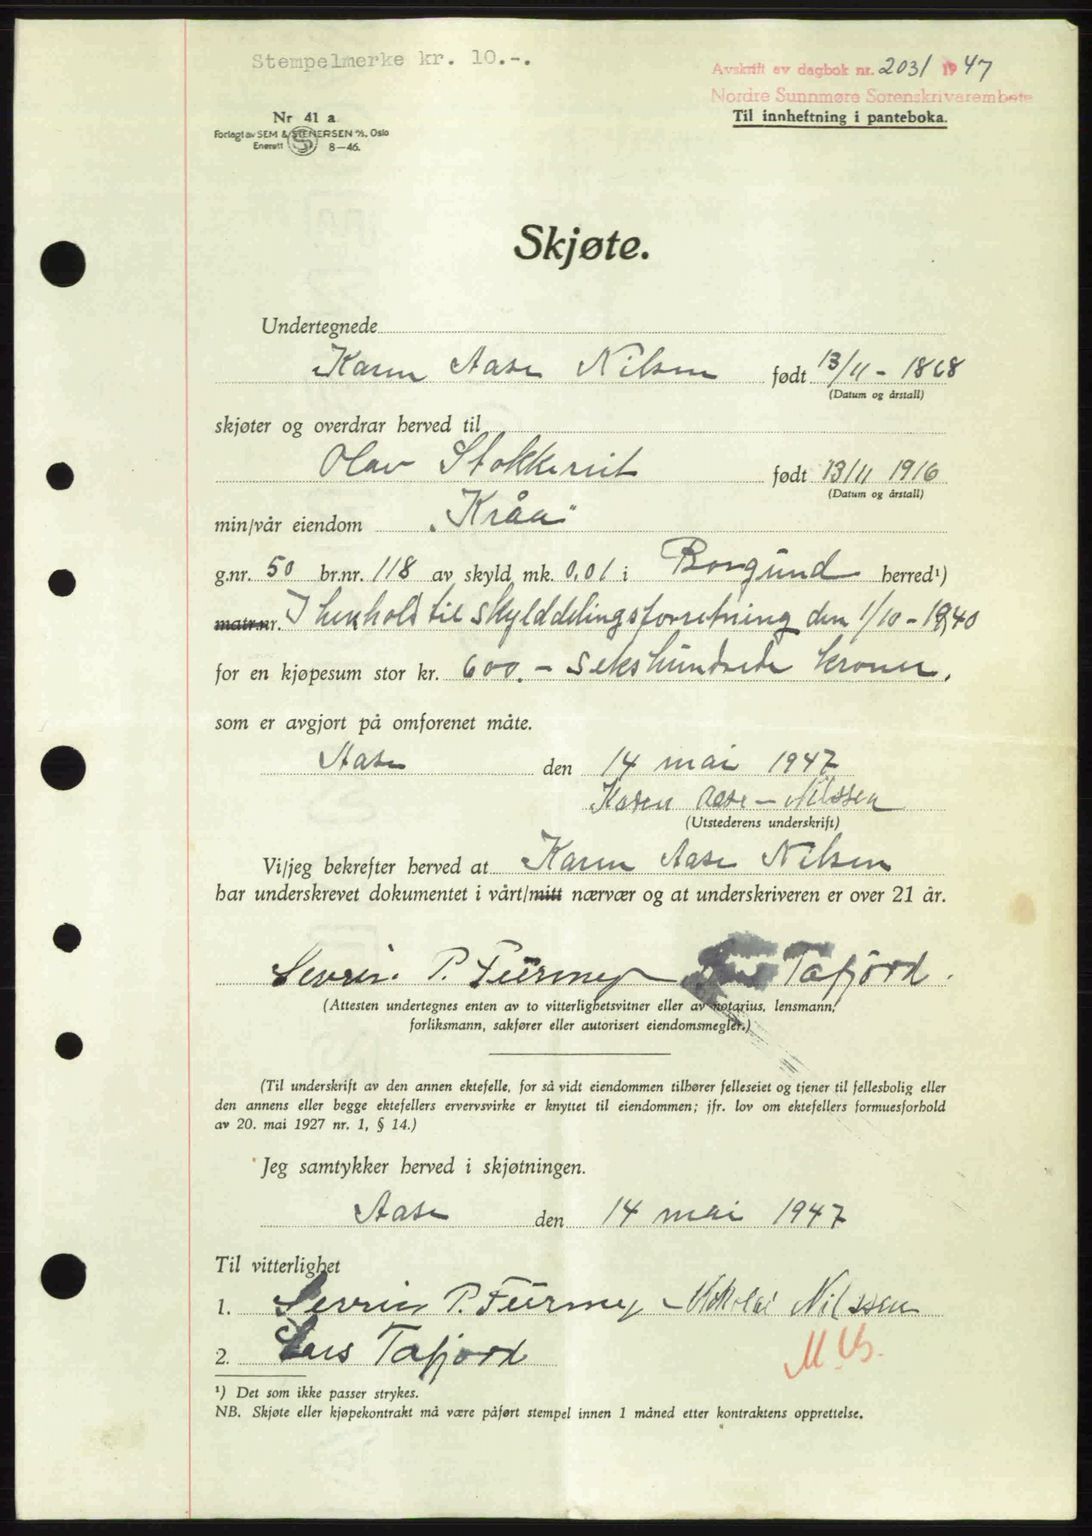 Stempelmerke kr. 10.-.
Avskrift av dagbok nr. 2031 1947
Nordre Sunnmøre Sorenskrivarembete
Til innheftning i panteboka.
Nr 41 a
Forlagt av SEM & STENERSEN A/S, Oslo
Enerett 8-46.
Skjøte.
Undertegnede
Karen Aase Nilsen født 13/11 - 1868
(Datum og årstall)
skjøter og overdrar herved til
Olav Stokkereit født 13/11 1916
(Datum og årstall)
min/vår eiendom "Kråa"
g.nr. 50 br.nr. 118 av skyld mk. 0,01 i Borgund herred¹)
matr.nr. I henhold til skylddelingsforretning den 1/10 - 1940
for en kjøpesum stor kr. 600.- sekshundrede kroner.
som er avgjort på omforenet måte.
Aase den 14 mai 1947
Karen Aase - Nilssen
(Utstederens underskrift)
Vi/jeg bekrefter herved at Karen Aase Nilsen
har underskrevet dokumentet i vårt/mitt nærvær og at underskriveren er over 21 år.
Sevrin P. Furmyr Tafjord.
(Attesten undertegnes enten av to vitterlighetsvitner eller av notarius, lensmann,
forliksmann, sakfører eller autorisert eiendomsmegler.)
(Til underskrift av den annen ektefelle, for så vidt eiendommen tilhører felleseiet og tjener til fellesbolig eller
den annens eller begge ektefellers ervervsvirke er knyttet til eiendommen; jfr. lov om ektefellers formuesforhold
av 20. mai 1927 nr. 1, § 14.)
Jeg samtykker herved i skjøtningen.
Aase den 14 mai 1947
Til vitterlighet
1. Sevrin P. Furmyr Nikolai Nilssen
2. Tafjord
¹) Det som ikke passer strykes.
NB. Skjøte eller kjøpekontrakt må være påført stempel innen 1 måned etter kontraktens opprettelse.